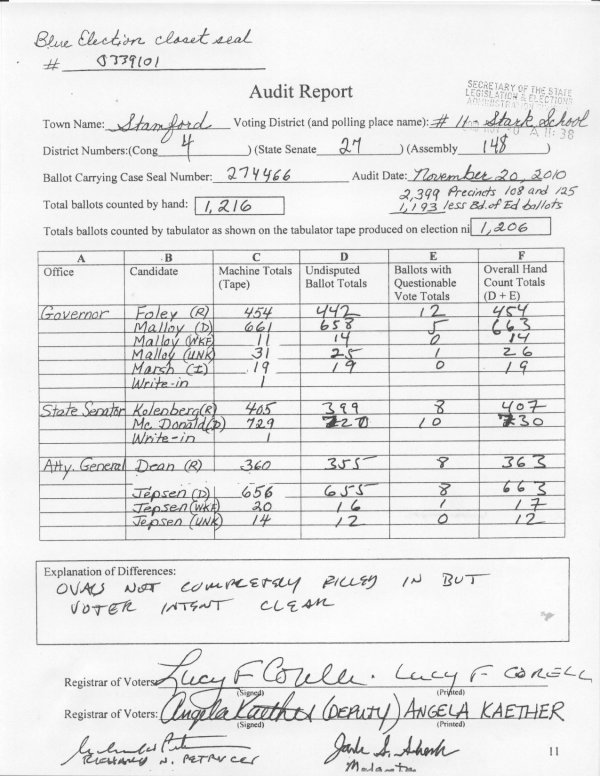 Blue Election closet seal
# 0339101
Audit Report
SECRETARY OF THE STATE
LEGISLATION & ELECTIONS
ADMINISTRATION
A 11: 38
Town Name: Stamford Voting District (and polling place name): # 11 Stark School
District Numbers:(Cong 4 ) (State Senate 27 ) (Assembly 148 )
Ballot Carrying Case Seal Number: 274466 Audit Date: November 20, 2010
2,399 Precincts 108 and 125
Total ballots counted by hand: 1,216 1,193 less Bd. of Ed ballots
Totals ballots counted by tabulator as shown on the tabulator tape produced on election ni 1,206
A B C D E F
Office Candidate Machine Totals (Tape) Undisputed Ballot Totals Ballots with Questionable Vote Totals Overall Hand Count Totals (D + E)
Governor Foley (R) 454 442 12 454
Malloy (D) 661 658 5 663
Malloy (WKF) 11 14 0 14
Malloy (UNK) 31 25 1 26
Marsh (I) 19 19 0 19
Write-in 1
State Senator Kolenberg(R) 405 399 8 407
Mc. Donald(D) 729 720 10 730
Write-in 1
Atty. General Dean (R) 360 355 8 363
Jepsen (D) 656 655 8 663
Jepsen (WKF) 20 16 1 17
Jepsen (UNK) 14 12 0 12
Explanation of Differences:
OVALS NOT COMPLETELY FILLED IN BUT
VOTER INTENT CLEAR
Registrar of Voters: Lucy F Corelli. LUCY F. CORELLI
(Signed) (Printed)
Registrar of Voters: Angela Kaether (DEPUTY) ANGELA KAETHER
(Signed) (Printed)
RICHARD N. PETRUCCI
11